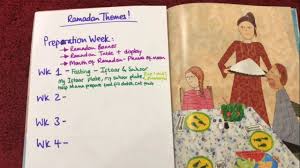 Ramadan Themes!
Preparation Week:
→ Ramadan Banner
→ Ramadan Table + display
→ Month of Ramadan - Phases of Moon
Wk 1 - Fasting - Iftaar & Suhoor
My Iftaar plate, my suhoor plate
help Mama prepare food for
Wk 2 -
Wk 3 -
Wk 4 -